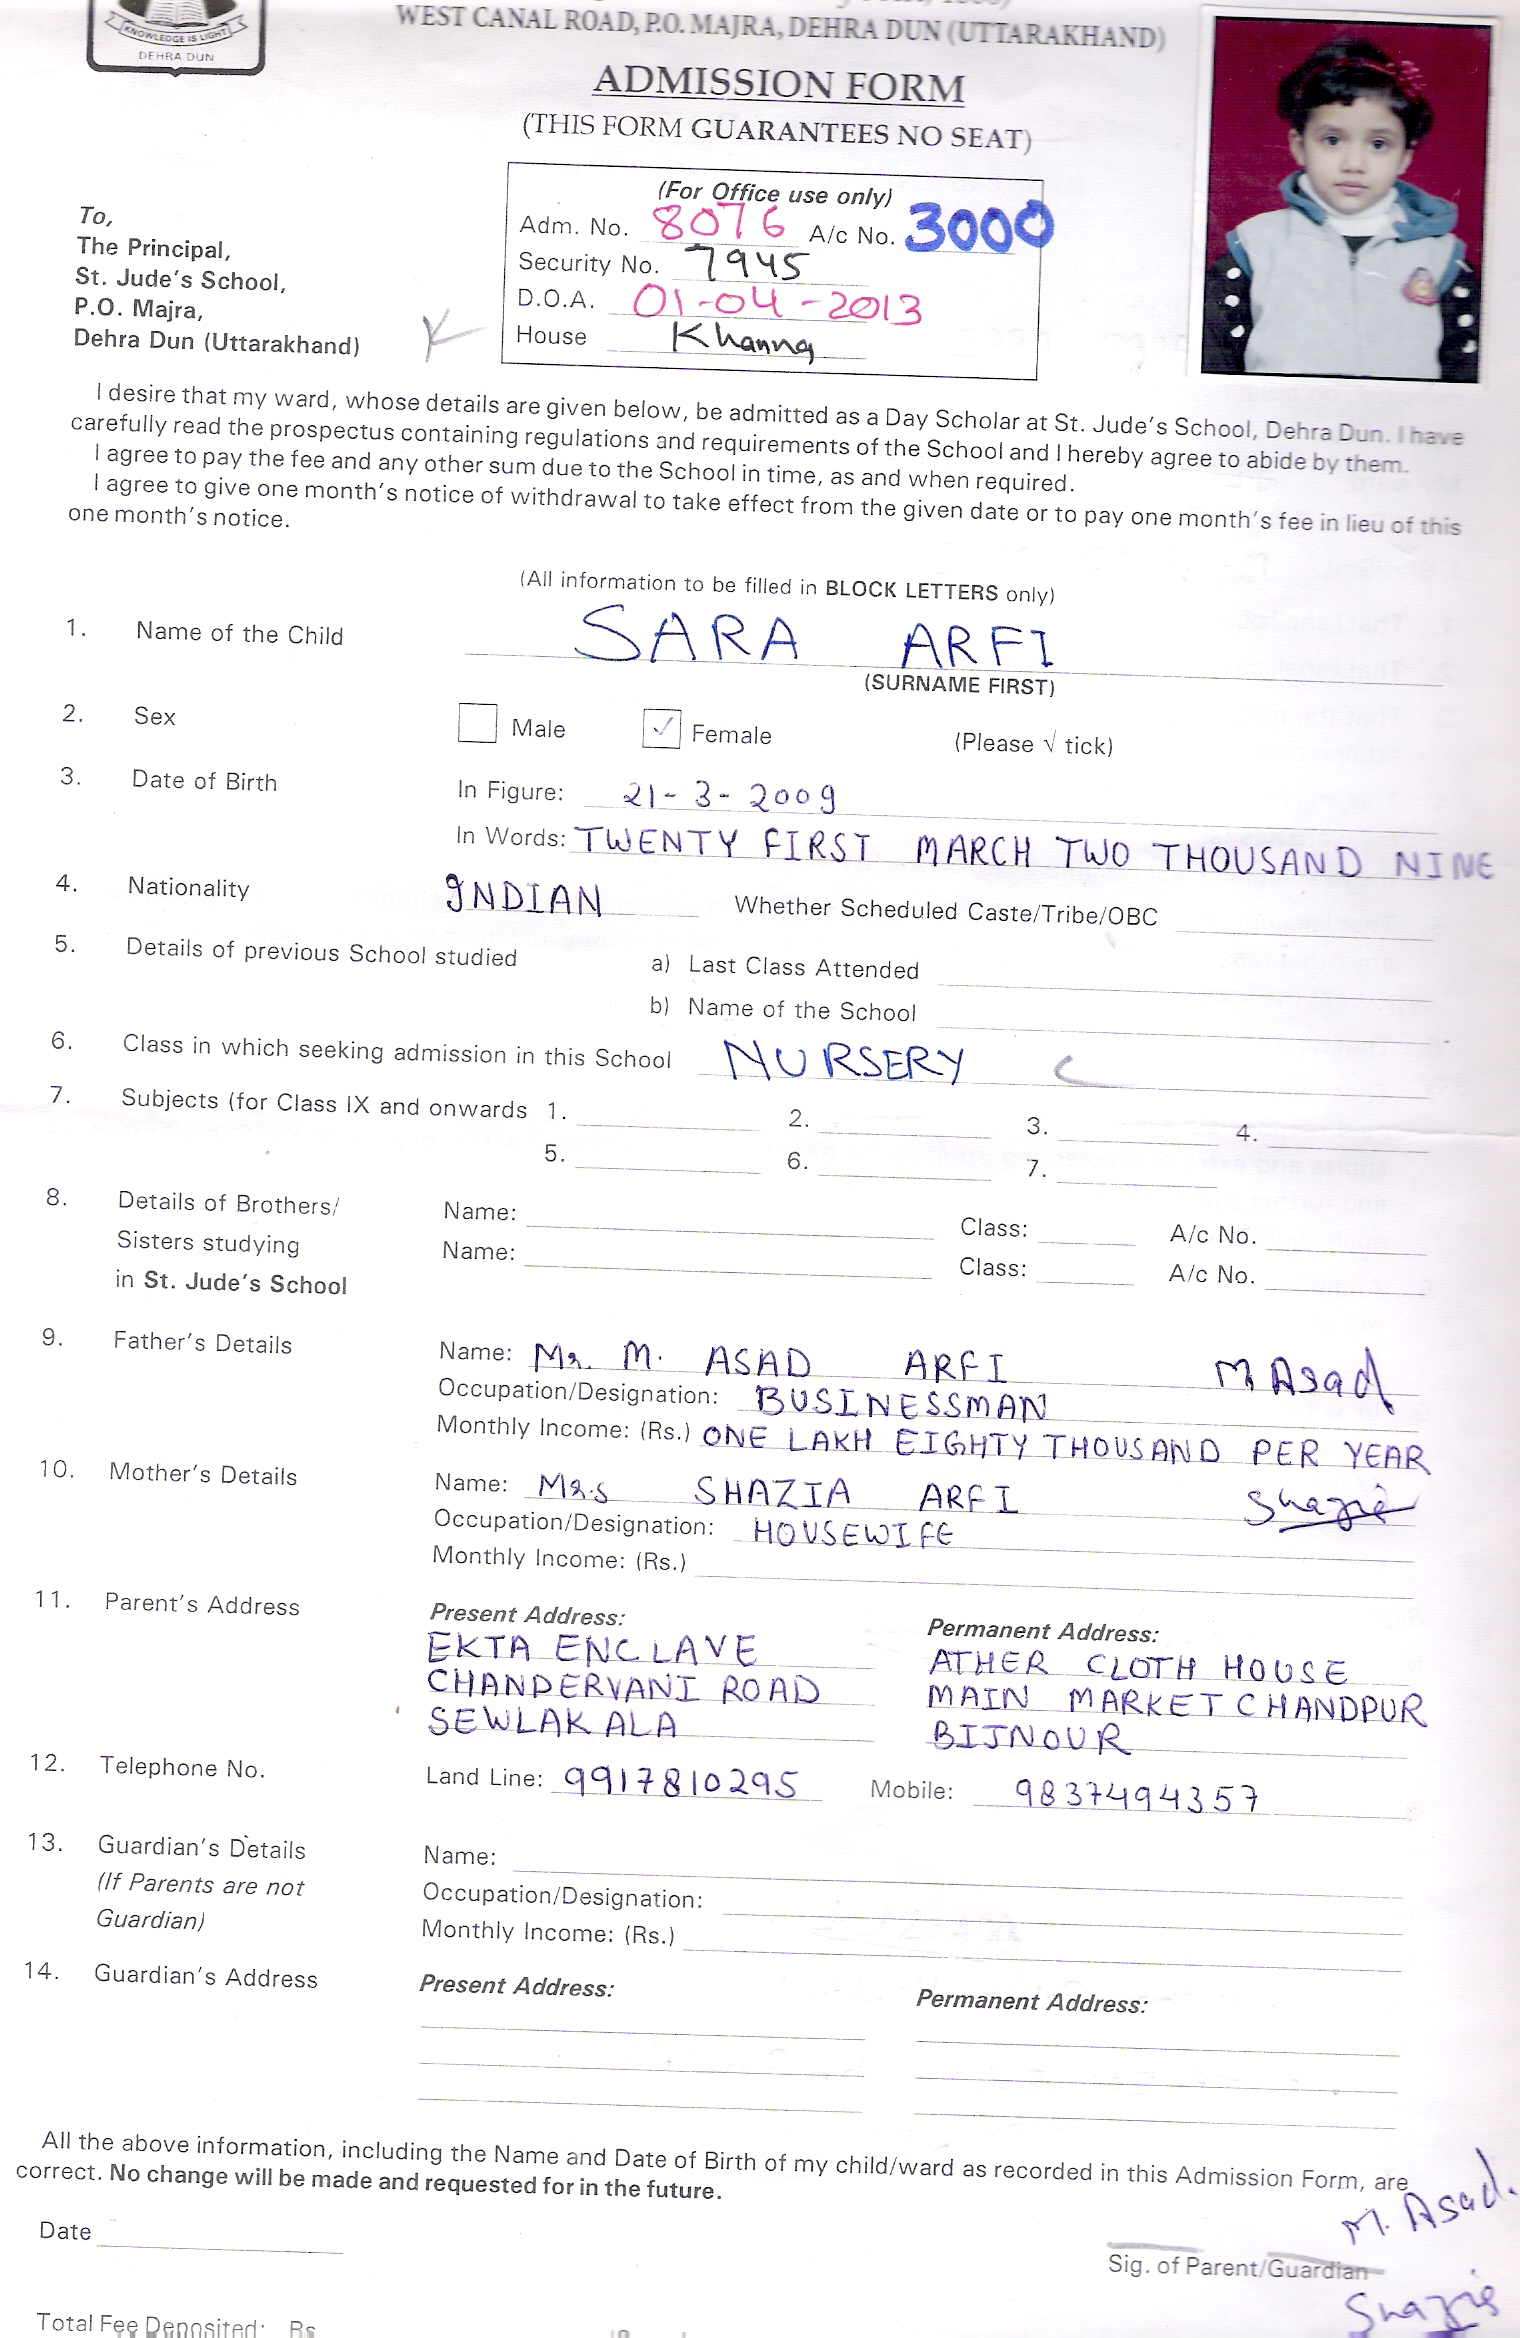 KNOWLEDGE IS LIGHT
DEHRA DUN
WEST CANAL ROAD, P.O. MAJRA, DEHRA DUN (UTTARAKHAND)
ADMISSION FORM
(THIS FORM GUARANTEES NO SEAT)
(For Office use only)
Adm. No. 8076 A/c No. 3000
Security No. 7945
D.O.A. 01-04-2013
House Khanna
To,
The Principal,
St. Jude's School,
P.O. Majra,
Dehra Dun (Uttarakhand)
I desire that my ward, whose details are given below, be admitted as a Day Scholar at St. Jude's School, Dehra Dun. I have
carefully read the prospectus containing regulations and requirements of the School and I hereby agree to abide by them.
I agree to pay the fee and any other sum due to the School in time, as and when required.
I agree to give one month's notice of withdrawal to take effect from the given date or to pay one month's fee in lieu of this
one month's notice.
(All information to be filled in BLOCK LETTERS only)
1. Name of the Child SARA ARFI
(SURNAME FIRST)
2. Sex Male ✓ Female (Please √ tick)
3. Date of Birth In Figure: 21-3-2009
In Words: TWENTY FIRST MARCH TWO THOUSAND NINE
4. Nationality INDIAN Whether Scheduled Caste/Tribe/OBC
5. Details of previous School studied a) Last Class Attended
b) Name of the School
6. Class in which seeking admission in this School NURSERY
7. Subjects (for Class IX and onwards 1. 2. 3. 4.
5. 6. 7.
8. Details of Brothers/ Name: Class: A/c No.
Sisters studying Name: Class: A/c No.
in St. Jude's School
9. Father's Details Name: Mr. M. ASAD ARFI M Asad
Occupation/Designation: BUSINESSMAN
Monthly Income: (Rs.) ONE LAKH EIGHTY THOUSAND PER YEAR
10. Mother's Details Name: Mrs SHAZIA ARFI Shazia
Occupation/Designation: HOUSEWIFE
Monthly Income: (Rs.)
11. Parent's Address Present Address: Permanent Address:
EKTA ENCLAVE ATHER CLOTH HOUSE
CHANDERVANI ROAD MAIN MARKET CHANDPUR
SEWLAKALA BIJNOUR
12. Telephone No. Land Line: 9917810295 Mobile: 9837494357
13. Guardian's Details Name:
(If Parents are not Occupation/Designation:
Guardian) Monthly Income: (Rs.)
14. Guardian's Address Present Address: Permanent Address:
All the above information, including the Name and Date of Birth of my child/ward as recorded in this Admission Form, are
correct. No change will be made and requested for in the future.
M. Asad.
Date
Sig. of Parent/Guardian
Shazia
Total Fee Deposited: Rs